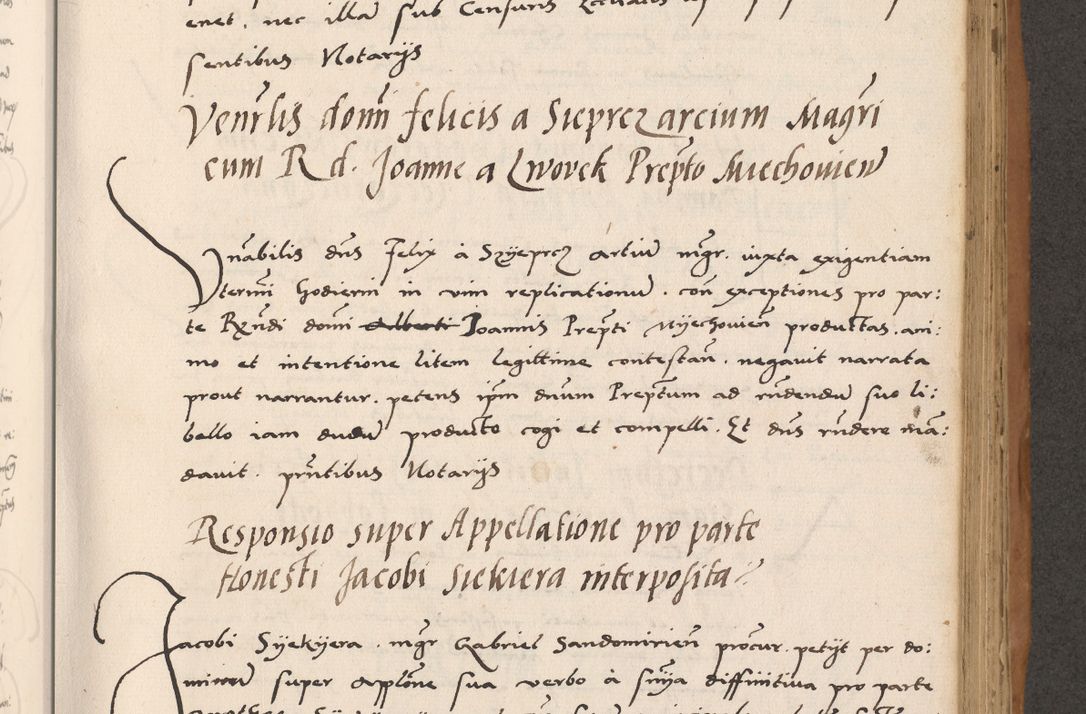 enet, nec illam sub Censuris
sentibus Notarijs
Venrlis domi felicis a Sieprcz arcium Magri
cum R d. Joanne a Lwovek Prepto Miechovien
Vnabilis dns Felix à Szyeprcz artium mgr. iuxta exigentiam
termi hodierni in vim replicationum. con exceptiones pro par:
te Rxndi domi Alberti Joannis Prepti Myechovien productas. ani:
mo et intentione litem legittime contestan. negavit narrata
prout narrantur. petens ipm dnum Preptum ad rndendum suo li:
bello iam dudum producto cogi et compelli. Et dns rndere man:
davit. prntibus Notarijs
Responsio super Appellatione pro parte
Honesti Jacobi Siekiera interposita
Jacobi Syekyera. mgr Gabriel Sandomirien procur. petyt per do:
minum super applone sua verbo à snia diffinitiva pro parte